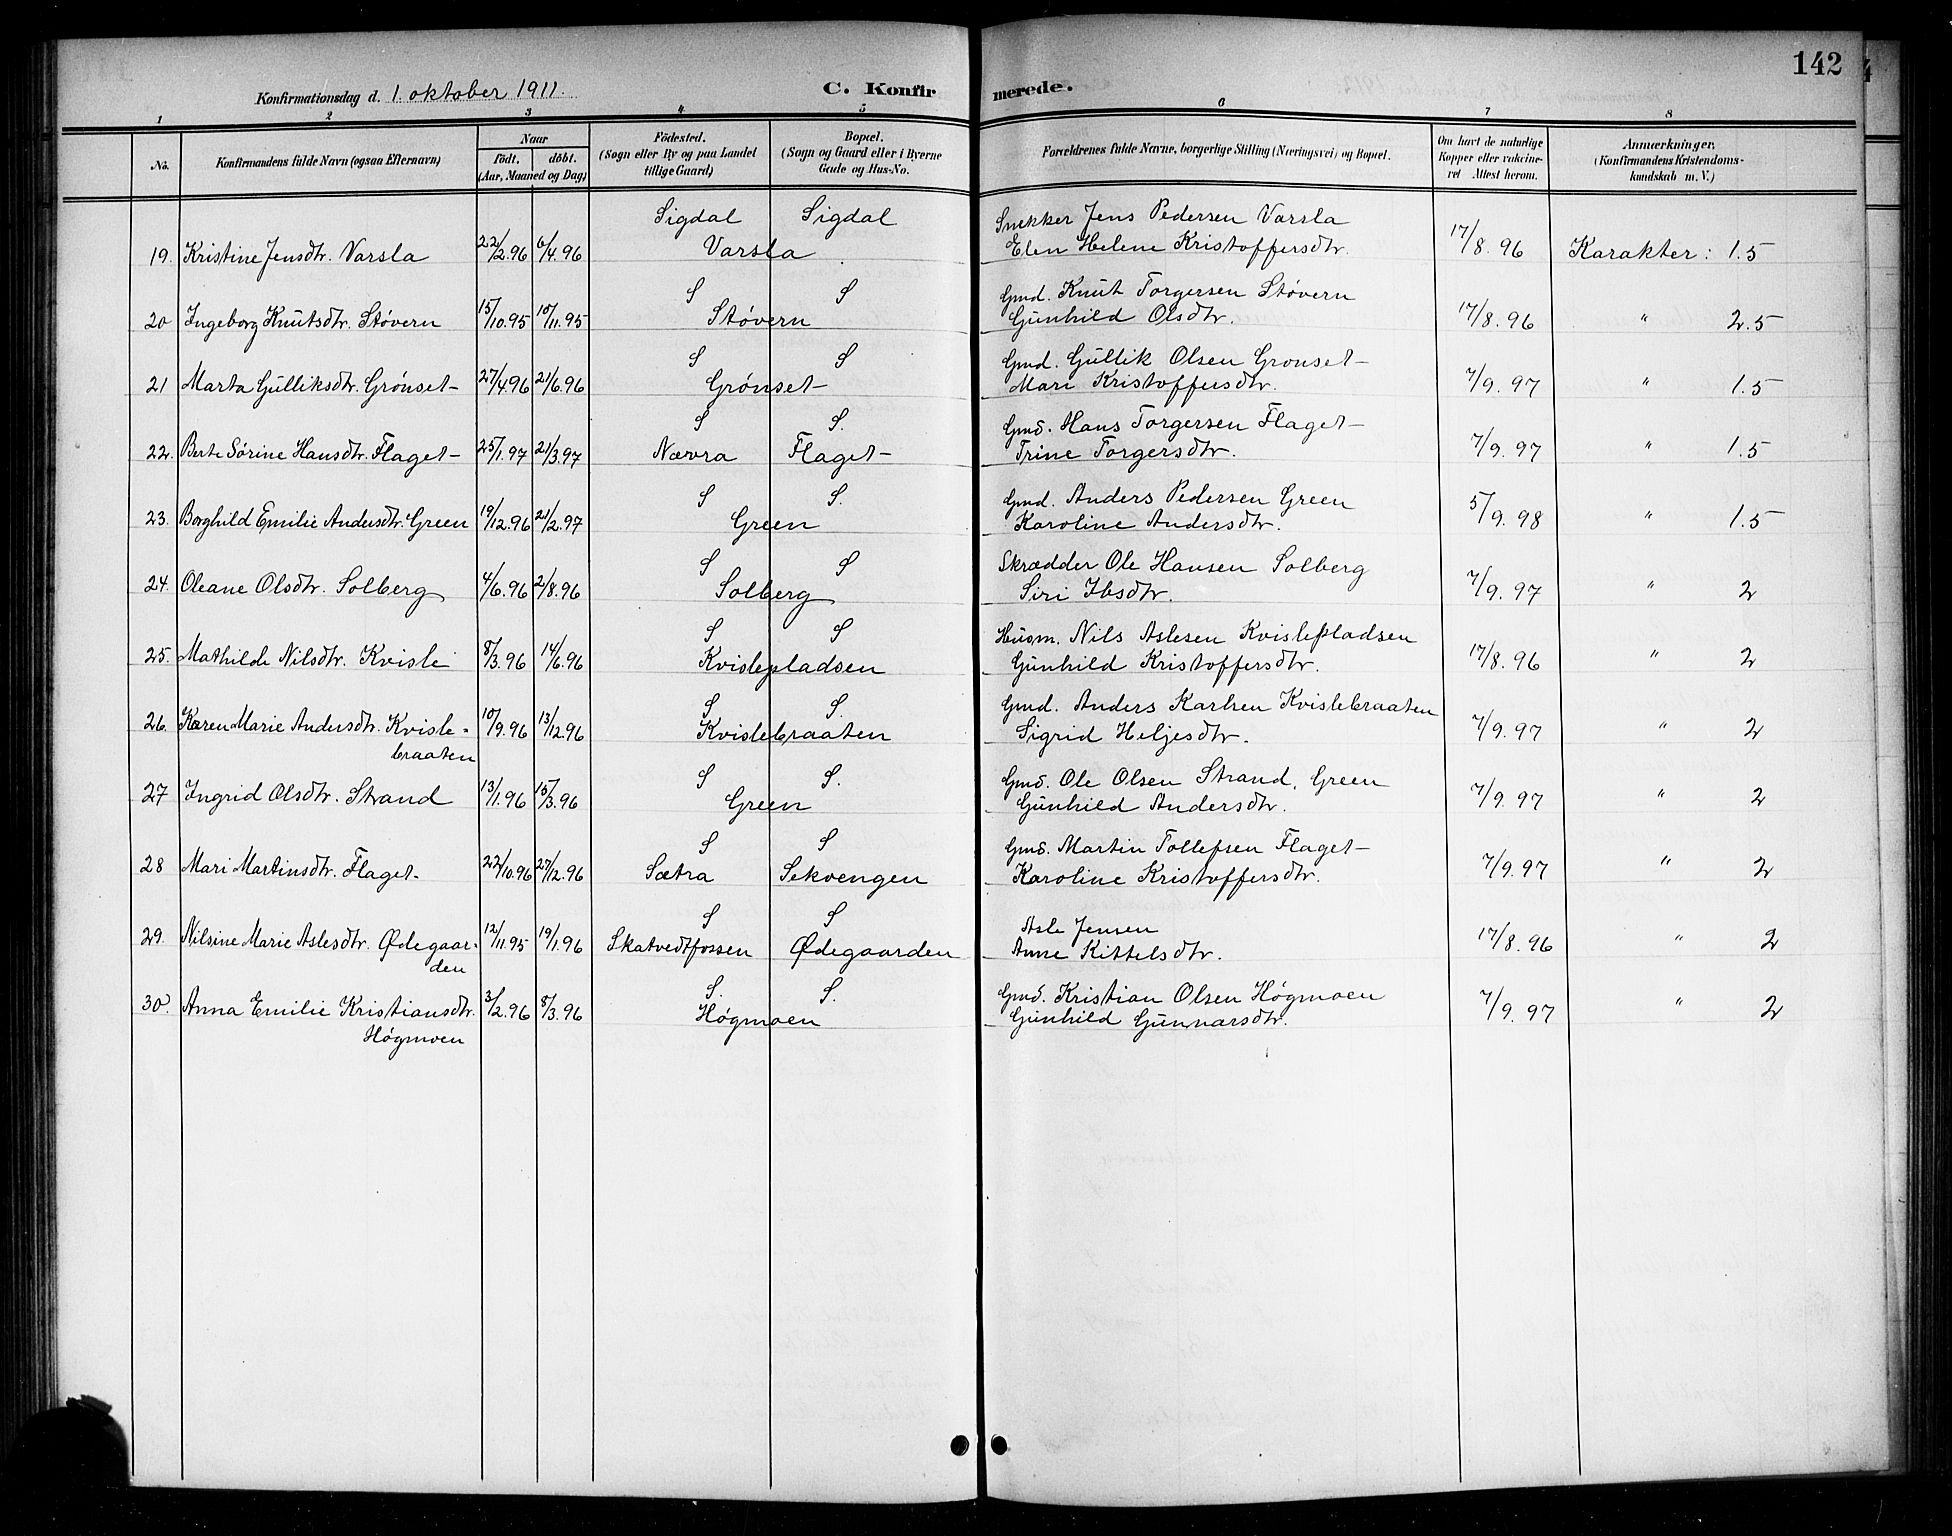 142
Konfirmationsdag d. 1. oktober 1911.
C. Konfirmerede.
1 2 3 4 5 6 7 8
No.
Konfirmandens fulde Navn (ogsaa Efternavn)
Naar
födt. döbt.
(Aar, Maaned og Dag)
Födested.
(Sogn eller By og paa Landet
tillige Gaard)
Bopæl.
(Sogn og Gaard eller i Byerne
Gade og Hus-No.
Forældrenes fulde Navne, borgerlige Stilling (Næringsvei) og Bopæl.
Om havt de naturlige
Kopper eller vakcine-
ret Attest herom.
Anmærkninger.
(Konfirmandens Kristendoms-
kundskab m. V.)
Sigdal Sigdal Snekker Jens Pedersen Varsla
19. Kristine Jensdtr. Varsla 22/2.96 6/4.96 Varsla Elen Helene Kristoffersdtr. 17/8.96 Karakter: 1.5
S S Gmd. Knut Torgersen Støvern
20 Ingeborg Knutsdtr. Støvern 15/10.95 10/11.95 Støvern Gunhild Olsdtr. 17/8.96 " 2.5
S S Gmd. Gullik Olsen Gronset
21 Marta Gulliksdtr. Grönset 27/4.96 21/6.96 Grönset Mari Kristoffersdtr. 7/9.97 " 1.5
S S. Gmd. Hans Torgersen Flaget
22. Berte Sørine Hansdtr. Flaget 25/1.97 21/3.97 Nævra Flaget Trine Torgersdtr. 7/9.97 " 1.5
S S. Gmd. Anders Pedersen Green
23. Borghild Emilie Andersdtr. Green 19/12.96 21/2.97 Green Karoline Andersdtr. 5/9.98 " 1.5
S S Skrædder Ole Hansen Solberg
24. Oleane Olsdtr. Solberg 4/6.96 2/8.96 Solberg Siri Ibsdtr. 7/9.97 " 2
S S Husm. Nils Aslesen Kvislepladsen
25. Mathilde Nilsdtr. Kvisle 8/3.96 14/6.96 Kvislepladsen Gunhild Kristoffersdtr. 17/8.96 " 2
S S. Gmd. Anders Karlsen Kvislebraaten
26. Karen Marie Andersdtr. Kvisle- 10/9.96 13/12.96 Kvislebraaten Sigrid Heljesdtr. 7/9.97 " 2
braaten
S S. Gmd. Ole Olsen Strand, Green
27 Ingrid Olsdtr. Strand 13/1.96 15/3.96 Green Gunhild Andersdtr. 7/9.97 " 2
S S Gmd. Martin Tollefsen Flaget
28 Mari Martinsdtr. Flaget. 22/10.96 27/12.96 Sætra Sekvengen Karoline Kristoffersdtr. 7/9.97 " 2
S S Asle Jensen
29. Nilsine Marie Aslesdtr. Ødegaar- 12/11.95 19/1.96 Skatvedtfossen Ødegaarden Anne Kittelsdtr. 17/8.96 " 2
den
S. S. Gmd. Kristian Olsen Høgmoen
30. Anna Emilie Kristiansdtr. 3/2.96 8/3.96 Høgmoen Gunhild Gunnarsdtr. 7/9.97 " 2
Høgmoen